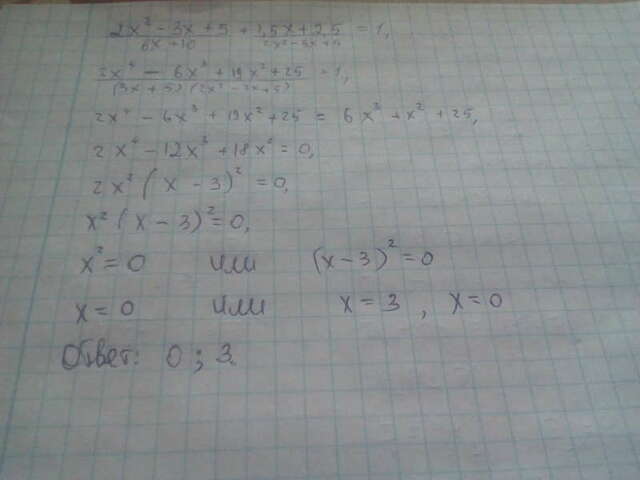 2x² - 3x + 5 / 6x + 10 + 1,5x + 2,5 / 2x² - 3x + 5 = 1,
2x⁴ - 6x³ + 19x² + 25 / (3x + 5)(2x² - 3x + 5) = 1,
2x⁴ - 6x³ + 19x² + 25 = 6x³ + x² + 25,
2x⁴ - 12x³ + 18x² = 0,
2x²(x - 3)² = 0,
x²(x - 3)² = 0,
x² = 0 или (x - 3)² = 0
x = 0 или x = 3, x = 0
Ответ: 0; 3.